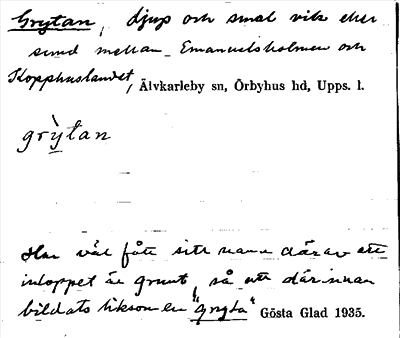 Grytan, djup och smal vik eller
sund mellan Emanuelsholmen och
Kopphuslandet, Älvkarleby sn, Örbyhus hd, Upps. l.
grỳtan
Har väl fått sitt namn därav att
inloppet är grunt, så att därinnan
bildats liksom en "gryta" Gösta Glad 1935.